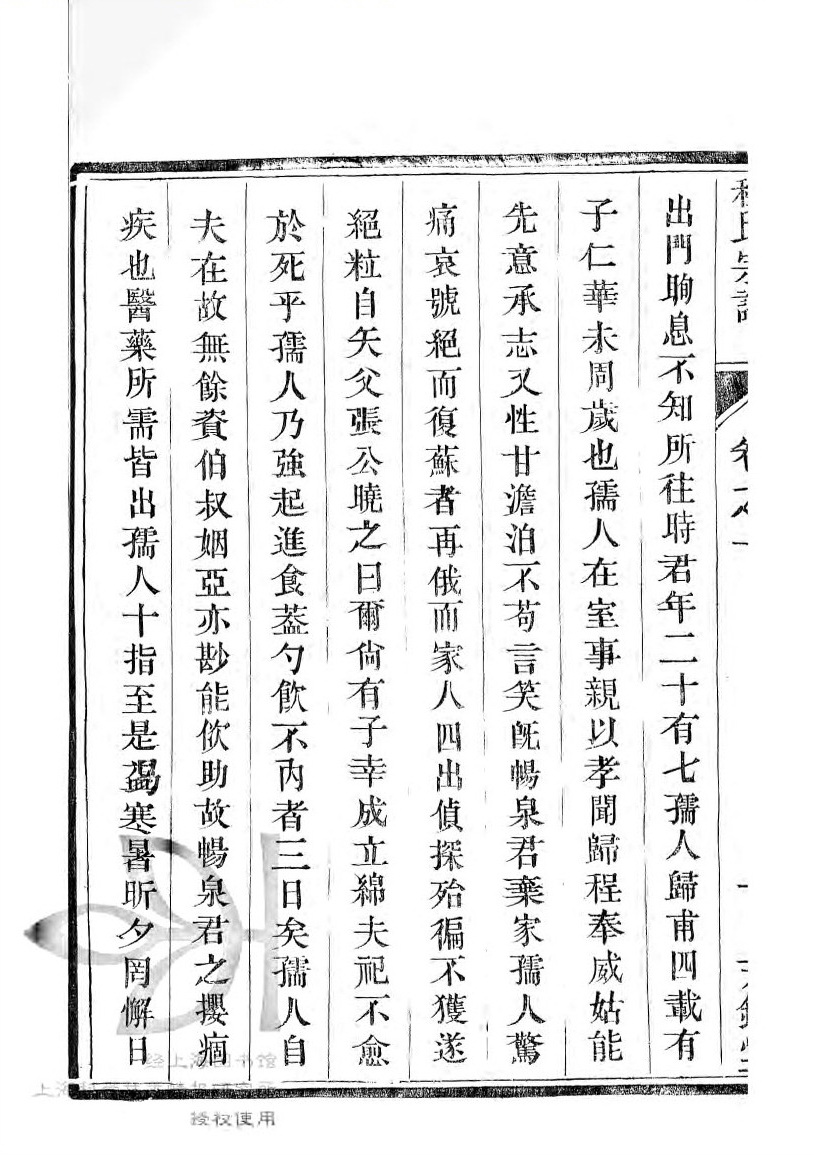 程氏宗譜
卷之一
出門眗息不知所往時君年二十有七孺人歸甫四載有
子仁華未周歲也孺人在室事親以孝聞歸程奉威姑能
先意承志又性甘澹泊不苟言笑旣暢泉君棄家孺人驚
痛哀號絕而復蘇者再俄而家人四出偵探殆徧不獲遂
絕粒自矢父張公曉之曰爾尙有子幸成立綿夫祀不愈
於死乎孺人乃強起進食葢勺飮不內者三日矣孺人自
夫在故無餘資伯叔姻亞亦尠能佽助故暢泉君之攖痼
疾也醫藥所需皆出孺人十指至是竭寒暑昕夕罔懈日
经上海图书馆
授权使用